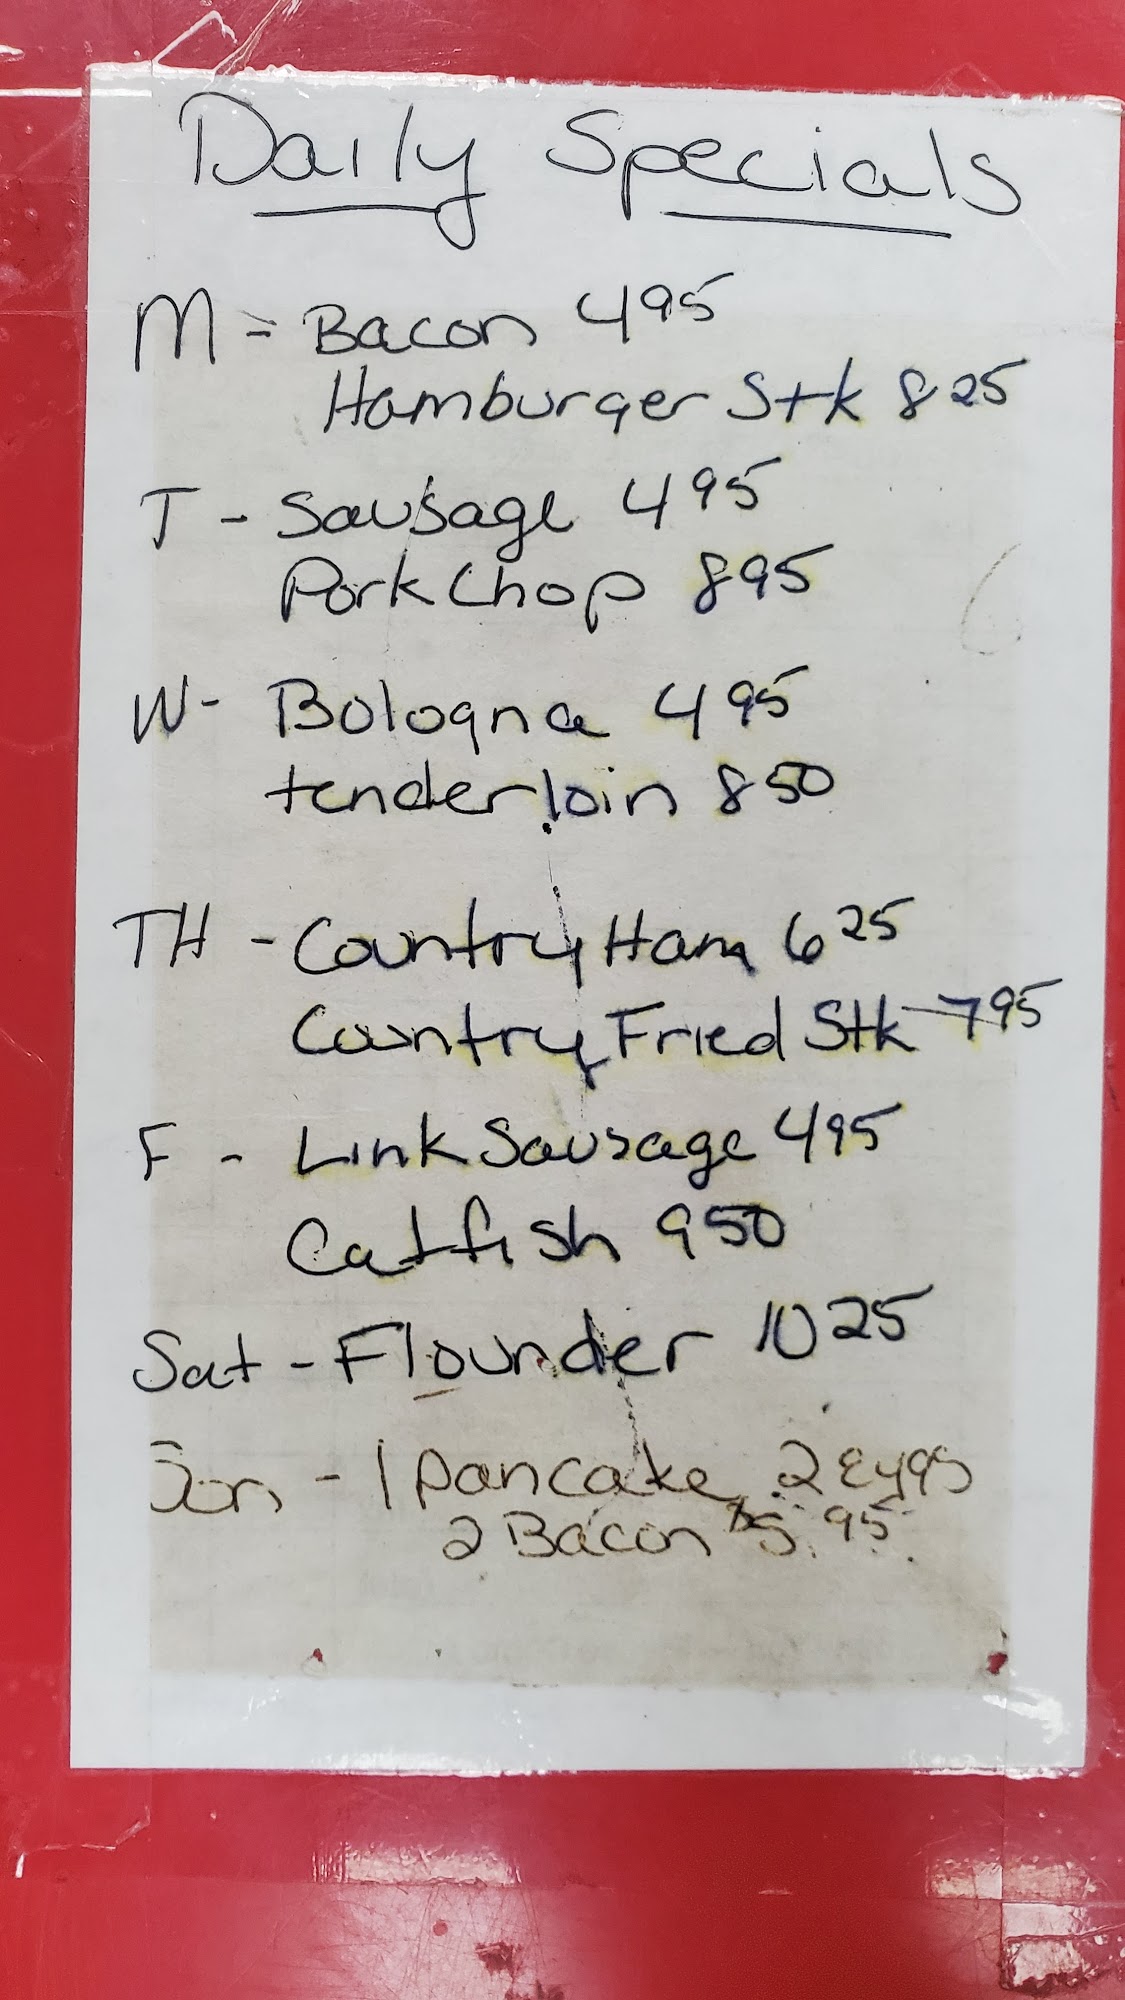 Daily Specials
M = Bacon 4 95
Hamburger Stk 8 25
T - Sausage 4 95
Pork Chop 8 95
W - Bologna 4 95
tenderloin 8 50
TH - Country Ham 6 25
Country Fried Stk 7 95
F - Link Sausage 4 95
Catfish 9 50
Sat - Flounder 10 25
Sun - 1 Pancake 2 Eggs
2 Bacon $5.95